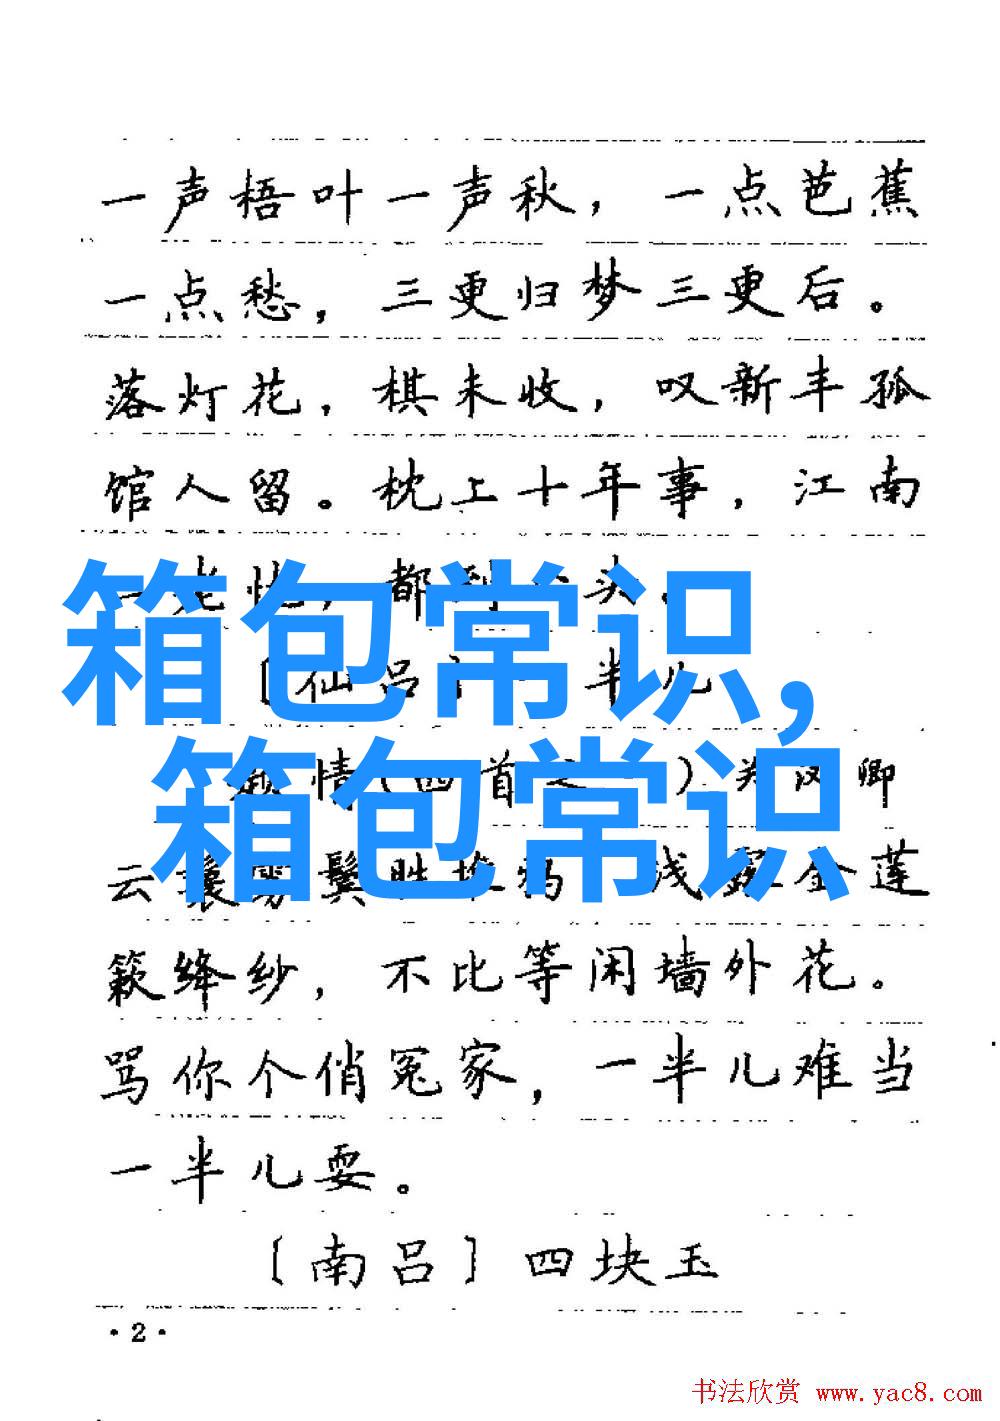 一声梧叶一声秋，一点芭蕉
一点愁，三更归梦三更后。
落灯花，棋未收，叹新丰孤
馆人留。枕上十年事，江南
老忧，都到头
箱包常识,
〔仙吕 半儿
箱包常识
情（四首 ）关汉卿
云鬟雾鬓胜堆鸦 浅露金莲
簌绛纱，不比等闲墙外花。
骂你个俏冤家，一半儿难当
一半儿耍。
〔南吕〕四块玉
·2·
书法欣赏 www.yac8.com